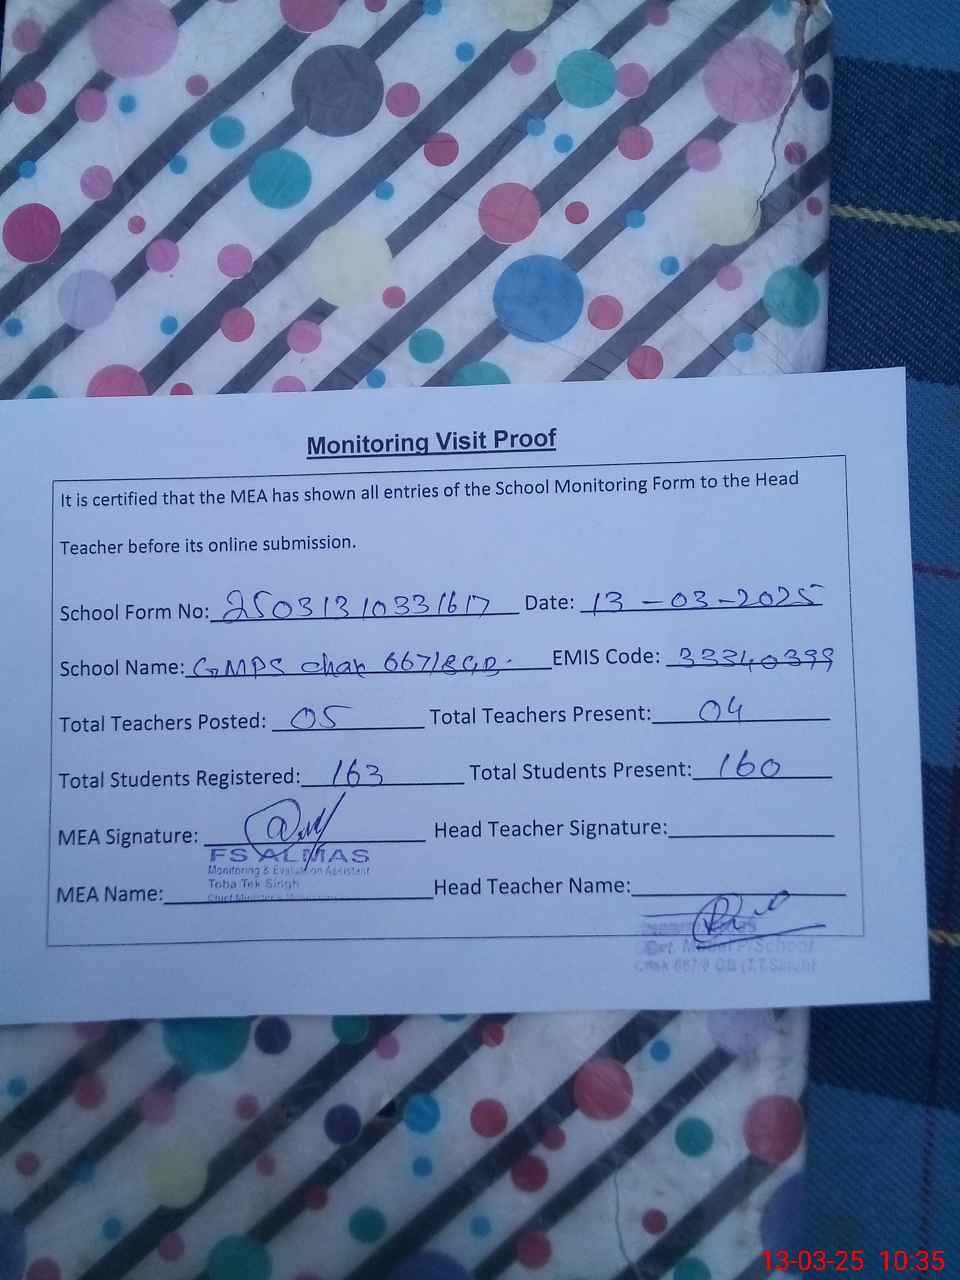 Monitoring Visit Proof
It is certified that the MEA has shown all entries of the School Monitoring Form to the Head
Teacher before its online submission.
School Form No: 25031310331617 Date: 13-03-2025
School Name: GMPS chak 667/8GB. EMIS Code: 33340399
Total Teachers Posted: 05 Total Teachers Present: 04
Total Students Registered: 163 Total Students Present: 160
MEA Signature: Head Teacher Signature:
FS ALMAS
Monitoring & Evaluation Assistant
Toba Tek Singh
MEA Name: Head Teacher Name:
Model P/School
Chak 667/8 GB (T.T.Singh)
13-03-25 10:35